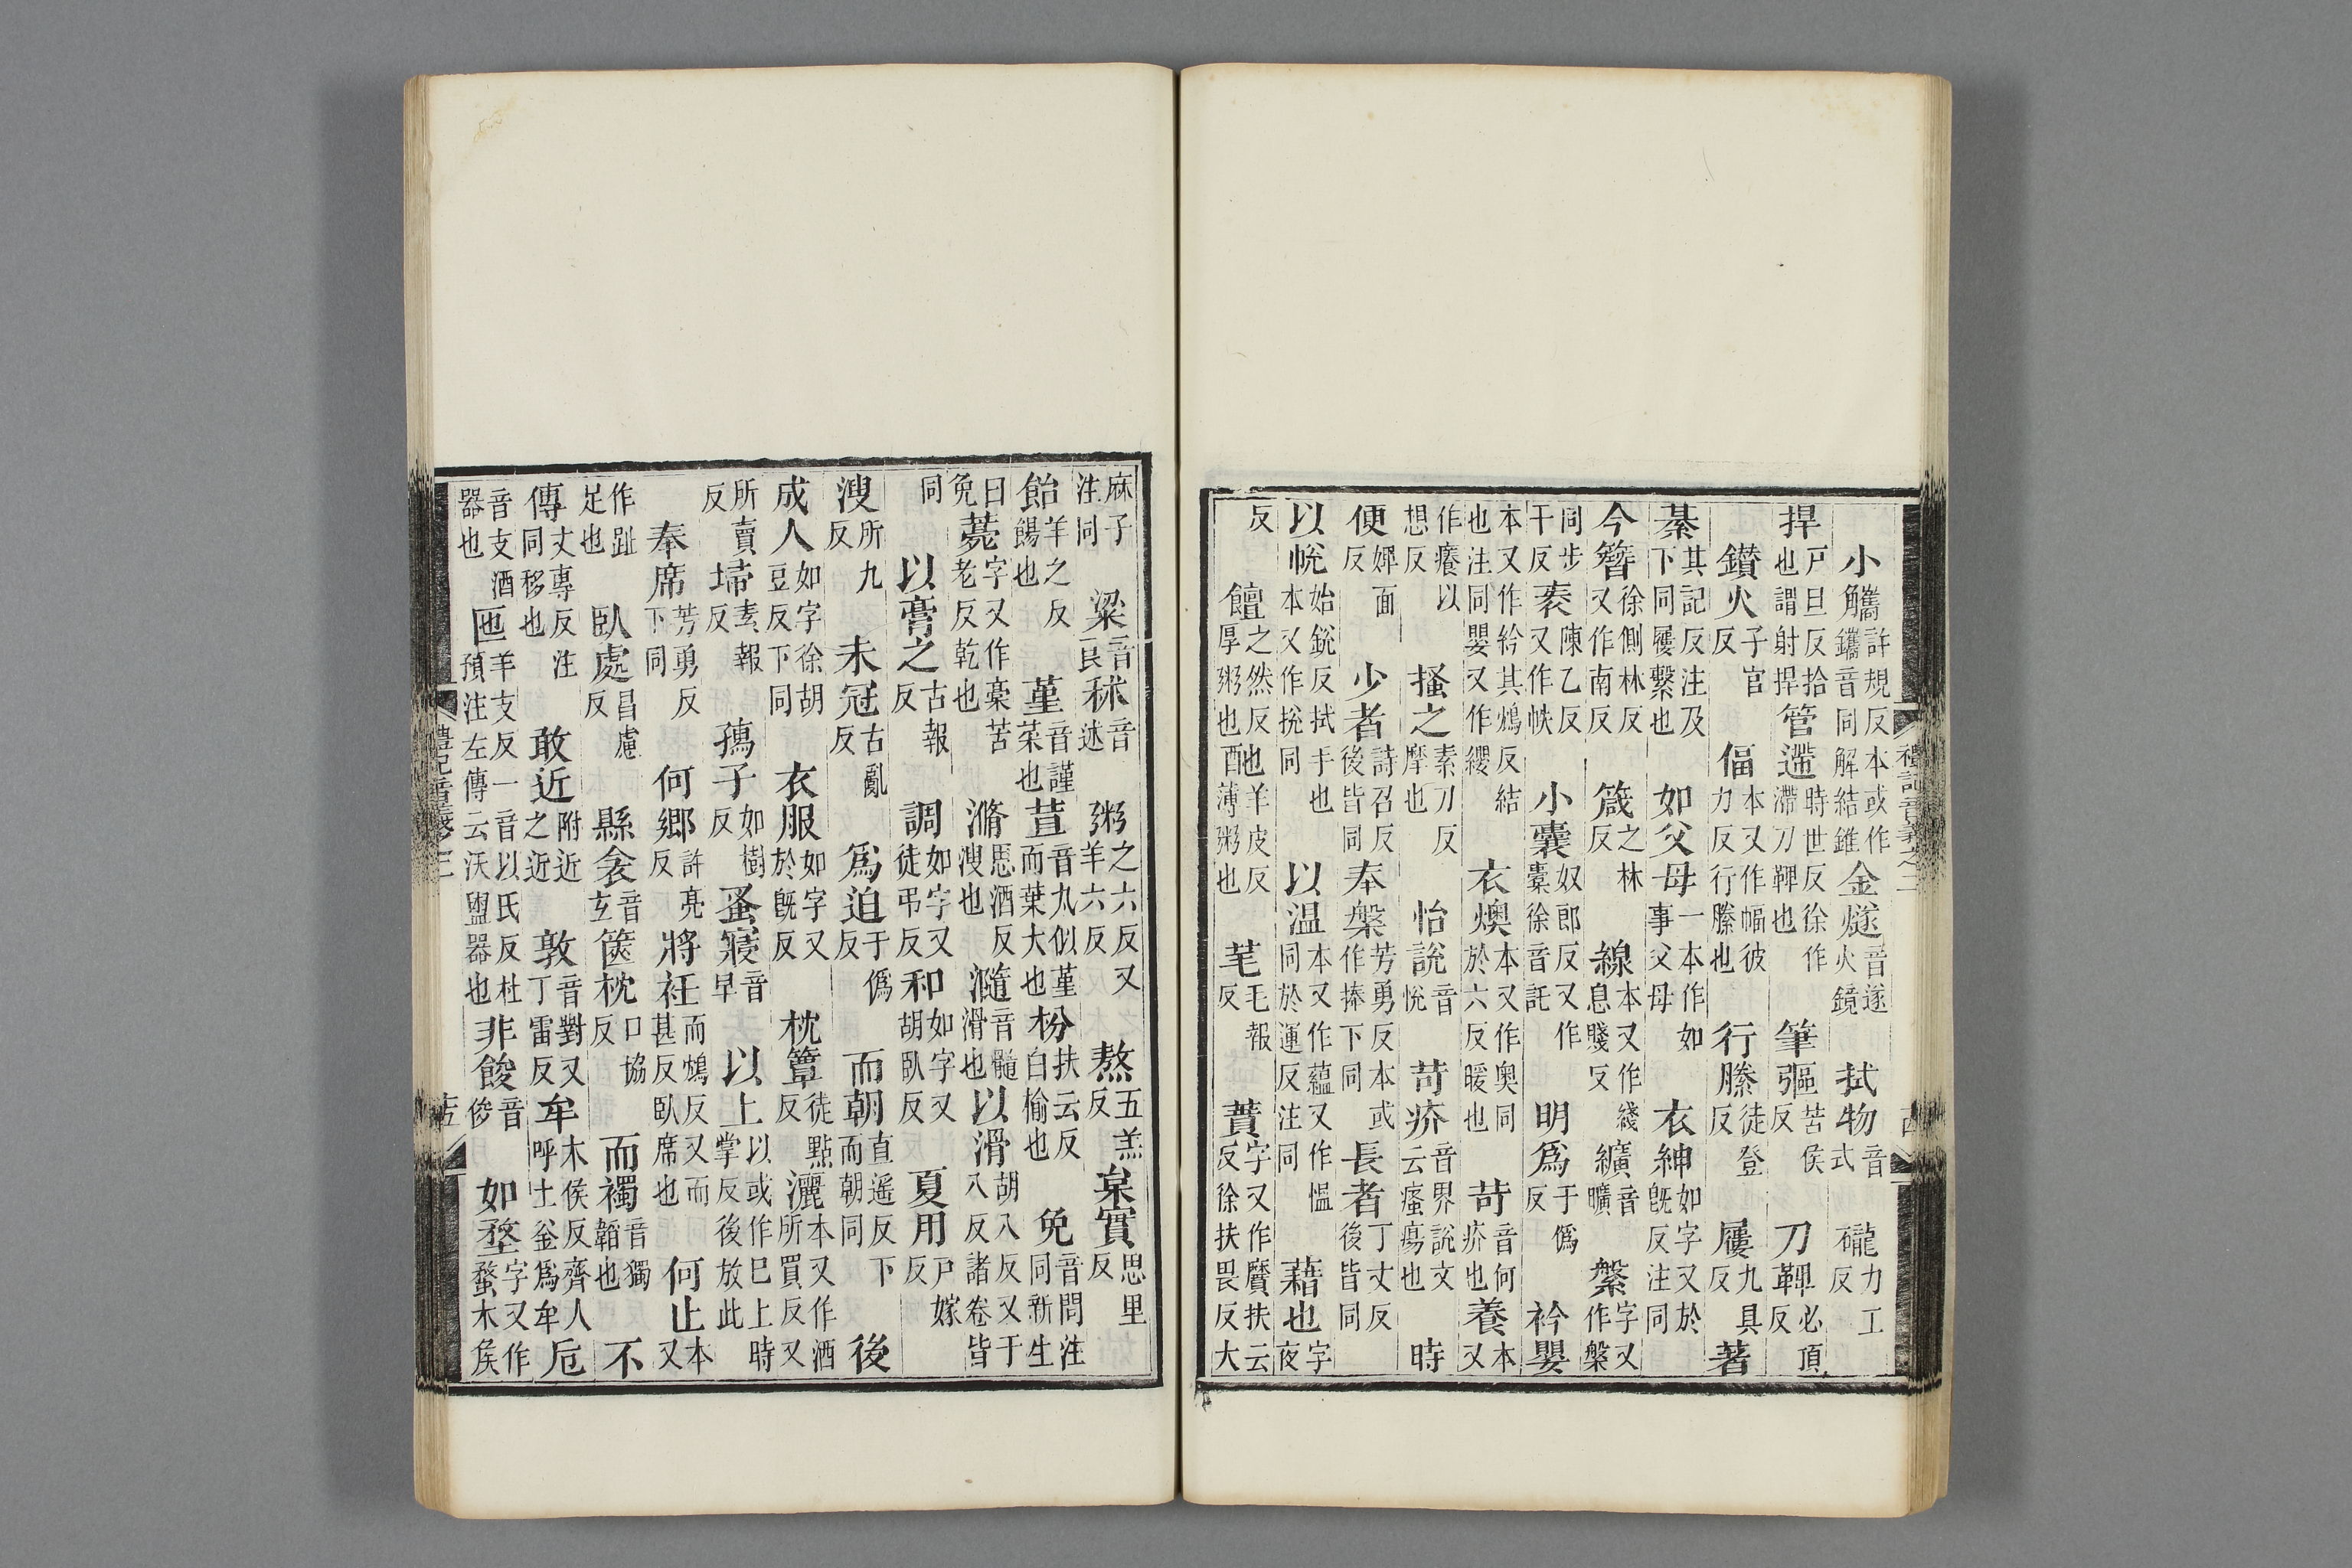 小觿許規反本或作鑴音同解結錐金燧音遂火鏡拭物音式礲力工反
捍戸旦反拾也謂射捍管遰時世反徐作滯刀鞞也筆彄苦侯反刀鞞必頂反
鑽火子官反偪本又作幅彼力反行縢也行縢徒登反屨九具反著
綦其記反注及下同屨繫也如父母一本作如事父母衣紳如字又於旣反注同
今簪徐側林反又作南反箴之林反線本又作綫息賤反纊音曠縏字又作槃
同步干反袠陳乙反又作帙小囊奴郎反又作橐徐音託明爲于僞反衿嬰
本又作紟其鴆反結也注同嬰又作纓衣燠本又作奧同於六反暖也苛音何疥也養本又
作癢以想反搔之素刀反摩也怡說音悅苛疥音界說文云瘙瘍也時
便婢面反少者詩召反後皆同奉槃芳勇反本或作捧下同長者丁丈反後皆同
以帨始銳反拭手也本又作捝同以温本又作蘊又作愠同於運反注同藉也字夜
反饘之然反厚粥也酏羊皮反薄粥也芼毛報反蕡字又作黂扶云反徐扶畏反大
禮記音義之二
麻子注同粱音良秫音述粥之六反又羊六反熬五羔反枲實思里反
飴羊之反餳也堇音謹菜也荁音丸似堇而葉大也枌扶云反白榆也免音問注同新生
曰免薧字又作槀苦老反乾也滫思酒反溲也瀡音髓滑也以滑胡八反又于八反諸卷皆
同以膏之古報反調如字又徒弔反和如字又胡臥反夏用戸嫁反
溲所九反未冠古亂反爲迫于僞反而朝直遥反下而朝同後
成人如字徐胡豆反下同衣服如字又於旣反枕簟徒點反灑本又作洒所買反又
所賣反埽素報反孺子如樹反蚤寢音早以上以或作巳上時掌反後放此
奉席芳勇反下同何鄉許亮反將衽而鴆反又而甚反臥席也何止本又
作趾足也臥處昌慮反縣衾音玄篋枕口協反而襡音獨韜也不
傳丈專反注同移也敢近附近之近敦音對又丁雷反牟木侯反齊人呼土釜爲牟巵
音支酒器也匜羊支反一音以氏反杜預注左傳云沃盥器也非餕音俊如堥字又作蝥木侯